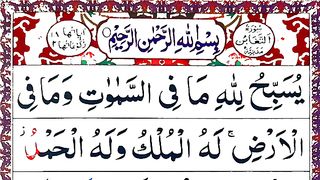 سُوْرَةُ التَّغَابُنِ مَدَنِيَّةٌ
بِسْمِ اللّٰهِ الرَّحْمٰنِ الرَّحِيْمِ
اٰيَاتُهَا ١٨
يُسَبِّحُ لِلّٰهِ مَا فِى السَّمٰوٰتِ وَمَا فِى
الْاَرْضِ ۚ لَهُ الْمُلْكُ وَلَهُ الْحَمْدُ